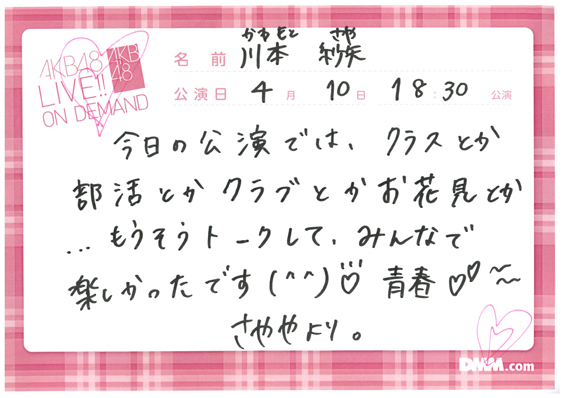 AKB48 AKB48
LIVE!!
ON DEMAND
かわもと さや
名前 川本 紗矢
公演日 4月 10日 18:30 公演
今日の公演では、クラスとか
部活とかクラブとかお花見とか
...もうそうトークして、みんなで
楽しかったです(^^)♡ 青春♡♡〜
さややより。
DMM.com